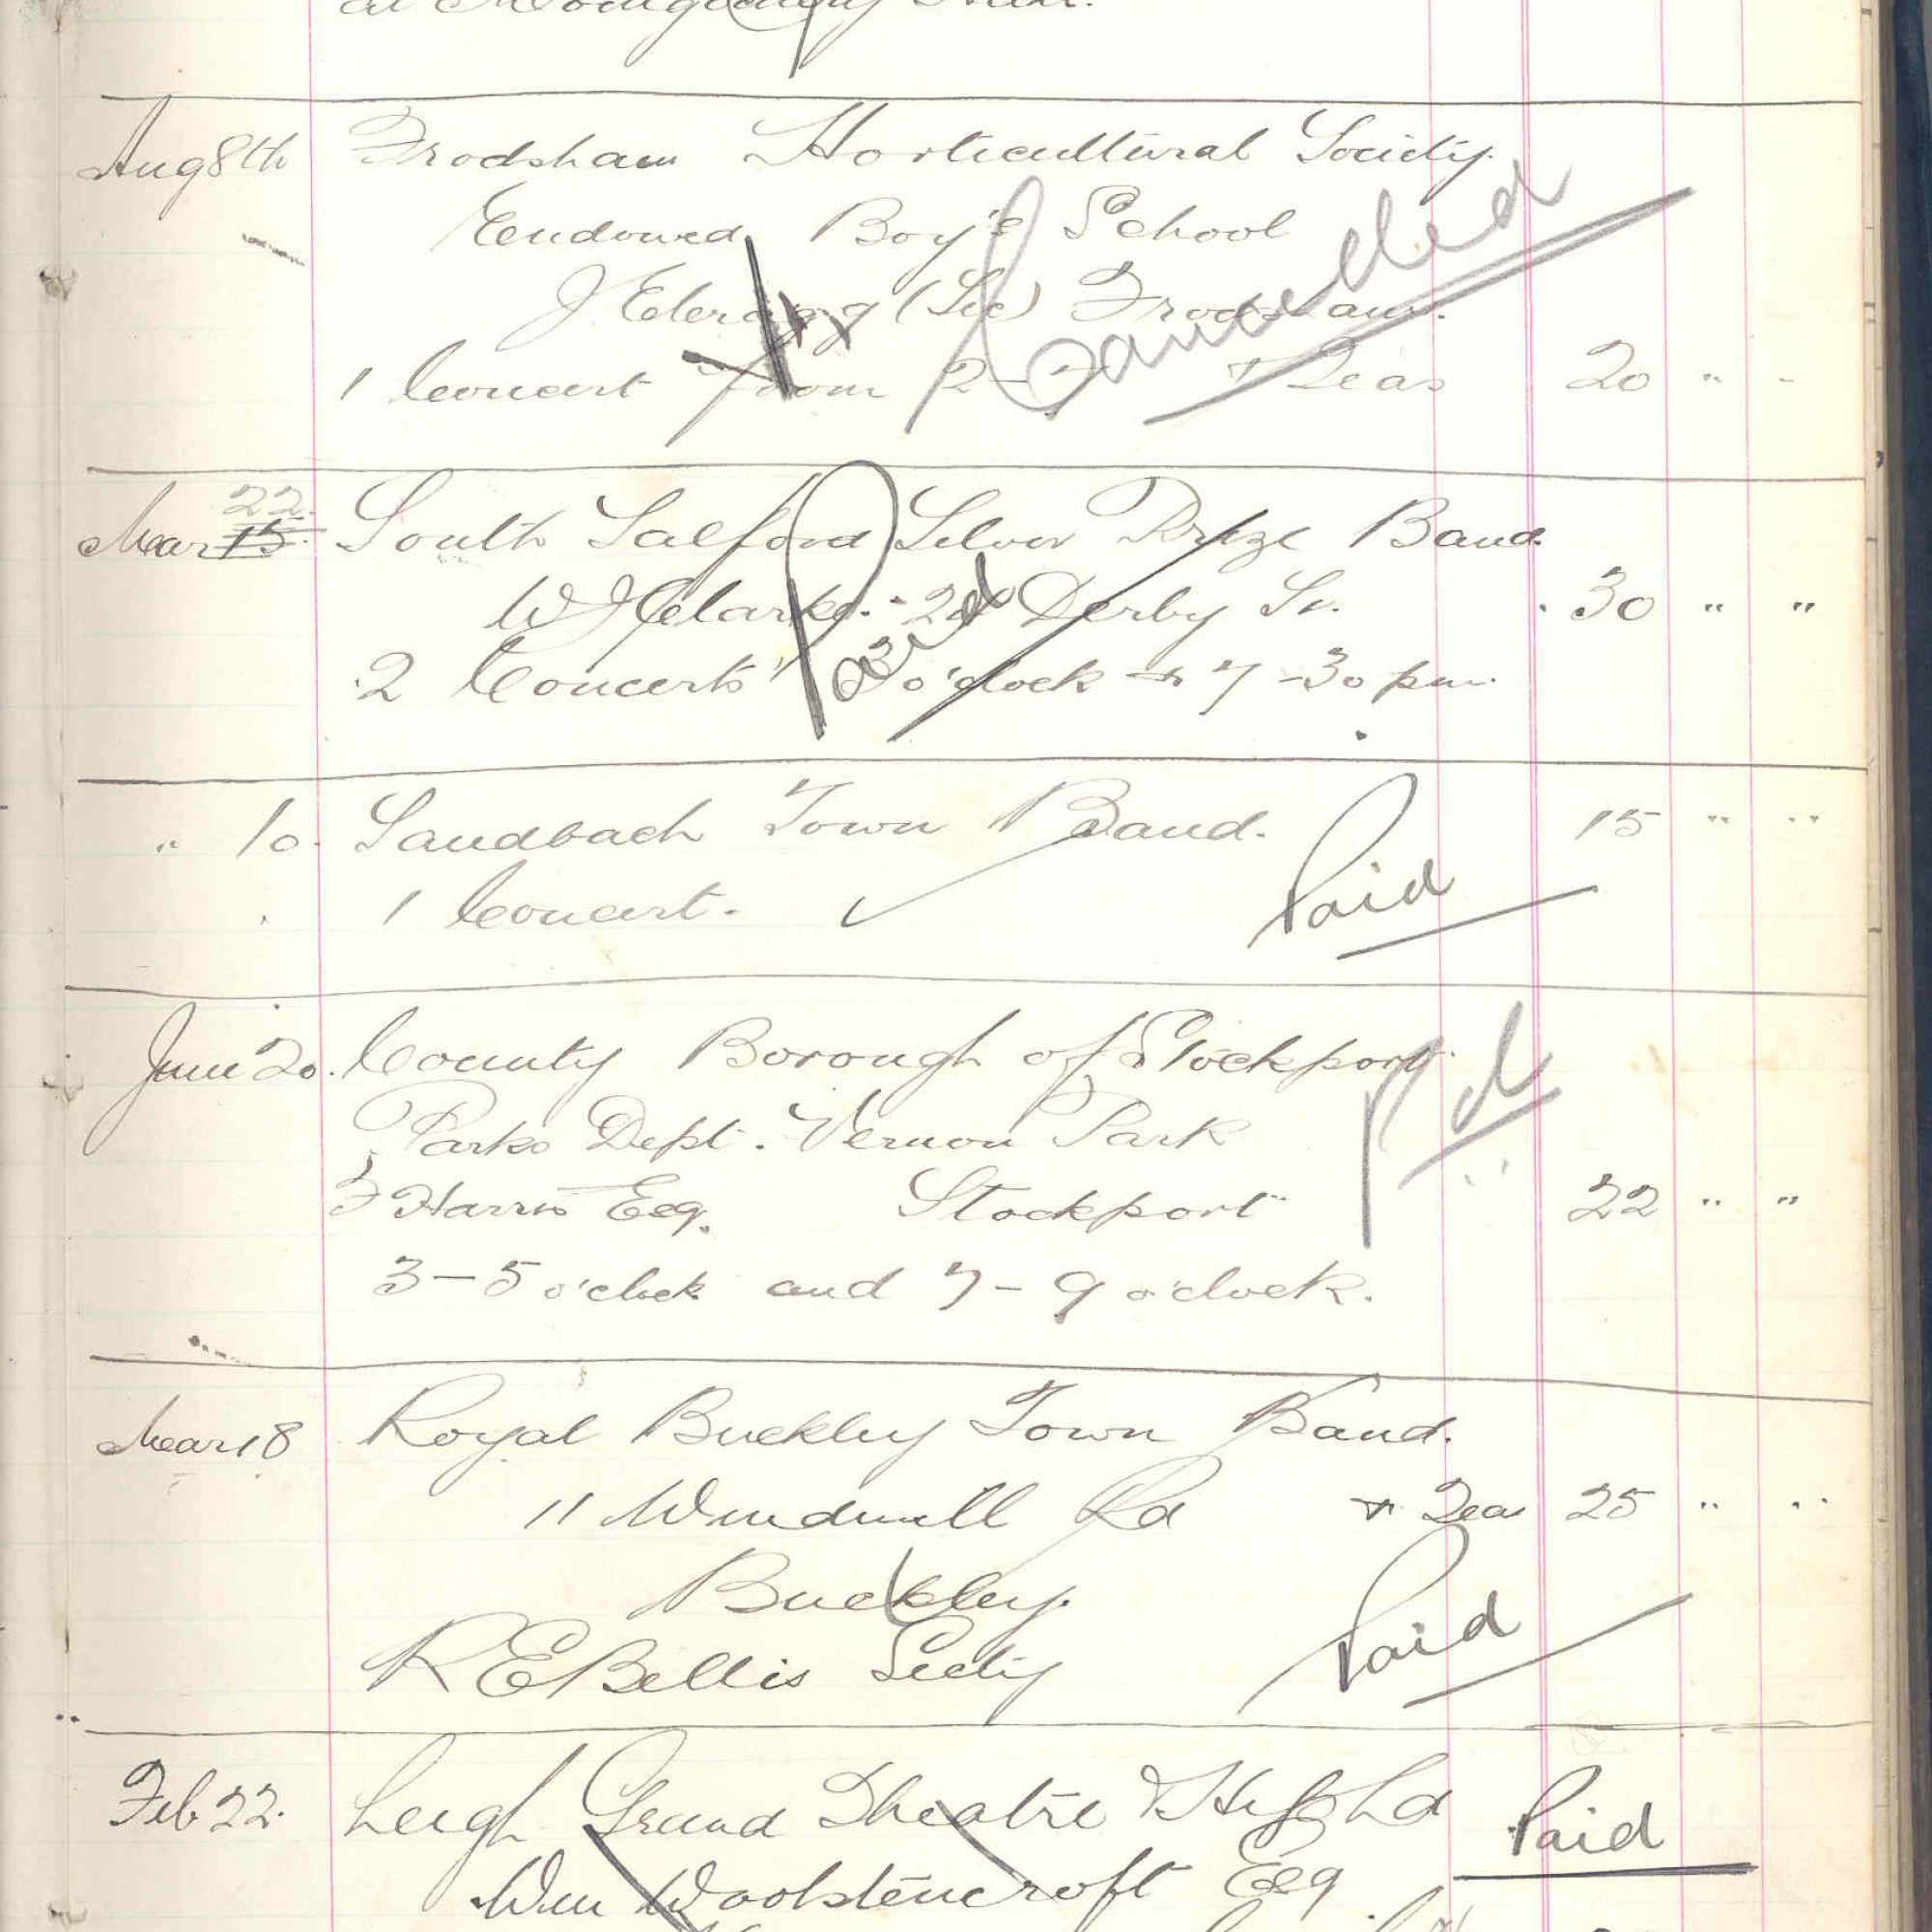 at Montgomery
Aug 8th Frodsham Horticultural Society.
Endowed Boy's School
J (Sec) Frodsham.
Cancelled
1 Concert from 2 - + Teas 20 " "
22.
Mar 15. South Salford Silver Prize Band.
W J Clarke. Derby St. 30 " "
Paid
2 Concerts 3 o'clock + 7-30 pm.
" 10. Sandbach Town Band. 15 " "
1 Concert. Paid
June 20. County Borough of Stockport.
Pd
Parks Dept. Vernon Park
F Harris Esq. Stockport 22 " "
3 - 5 o'clock and 7 - 9 o'clock.
Mar 18 Royal Buckley Town Band.
11 Windmill Rd + Teas 25 " "
Buckley.
R E Bellis Secty Paid
Feb 22. Leigh Grand Theatre & Hipp Ld Paid
Wm Woolstencroft Esq